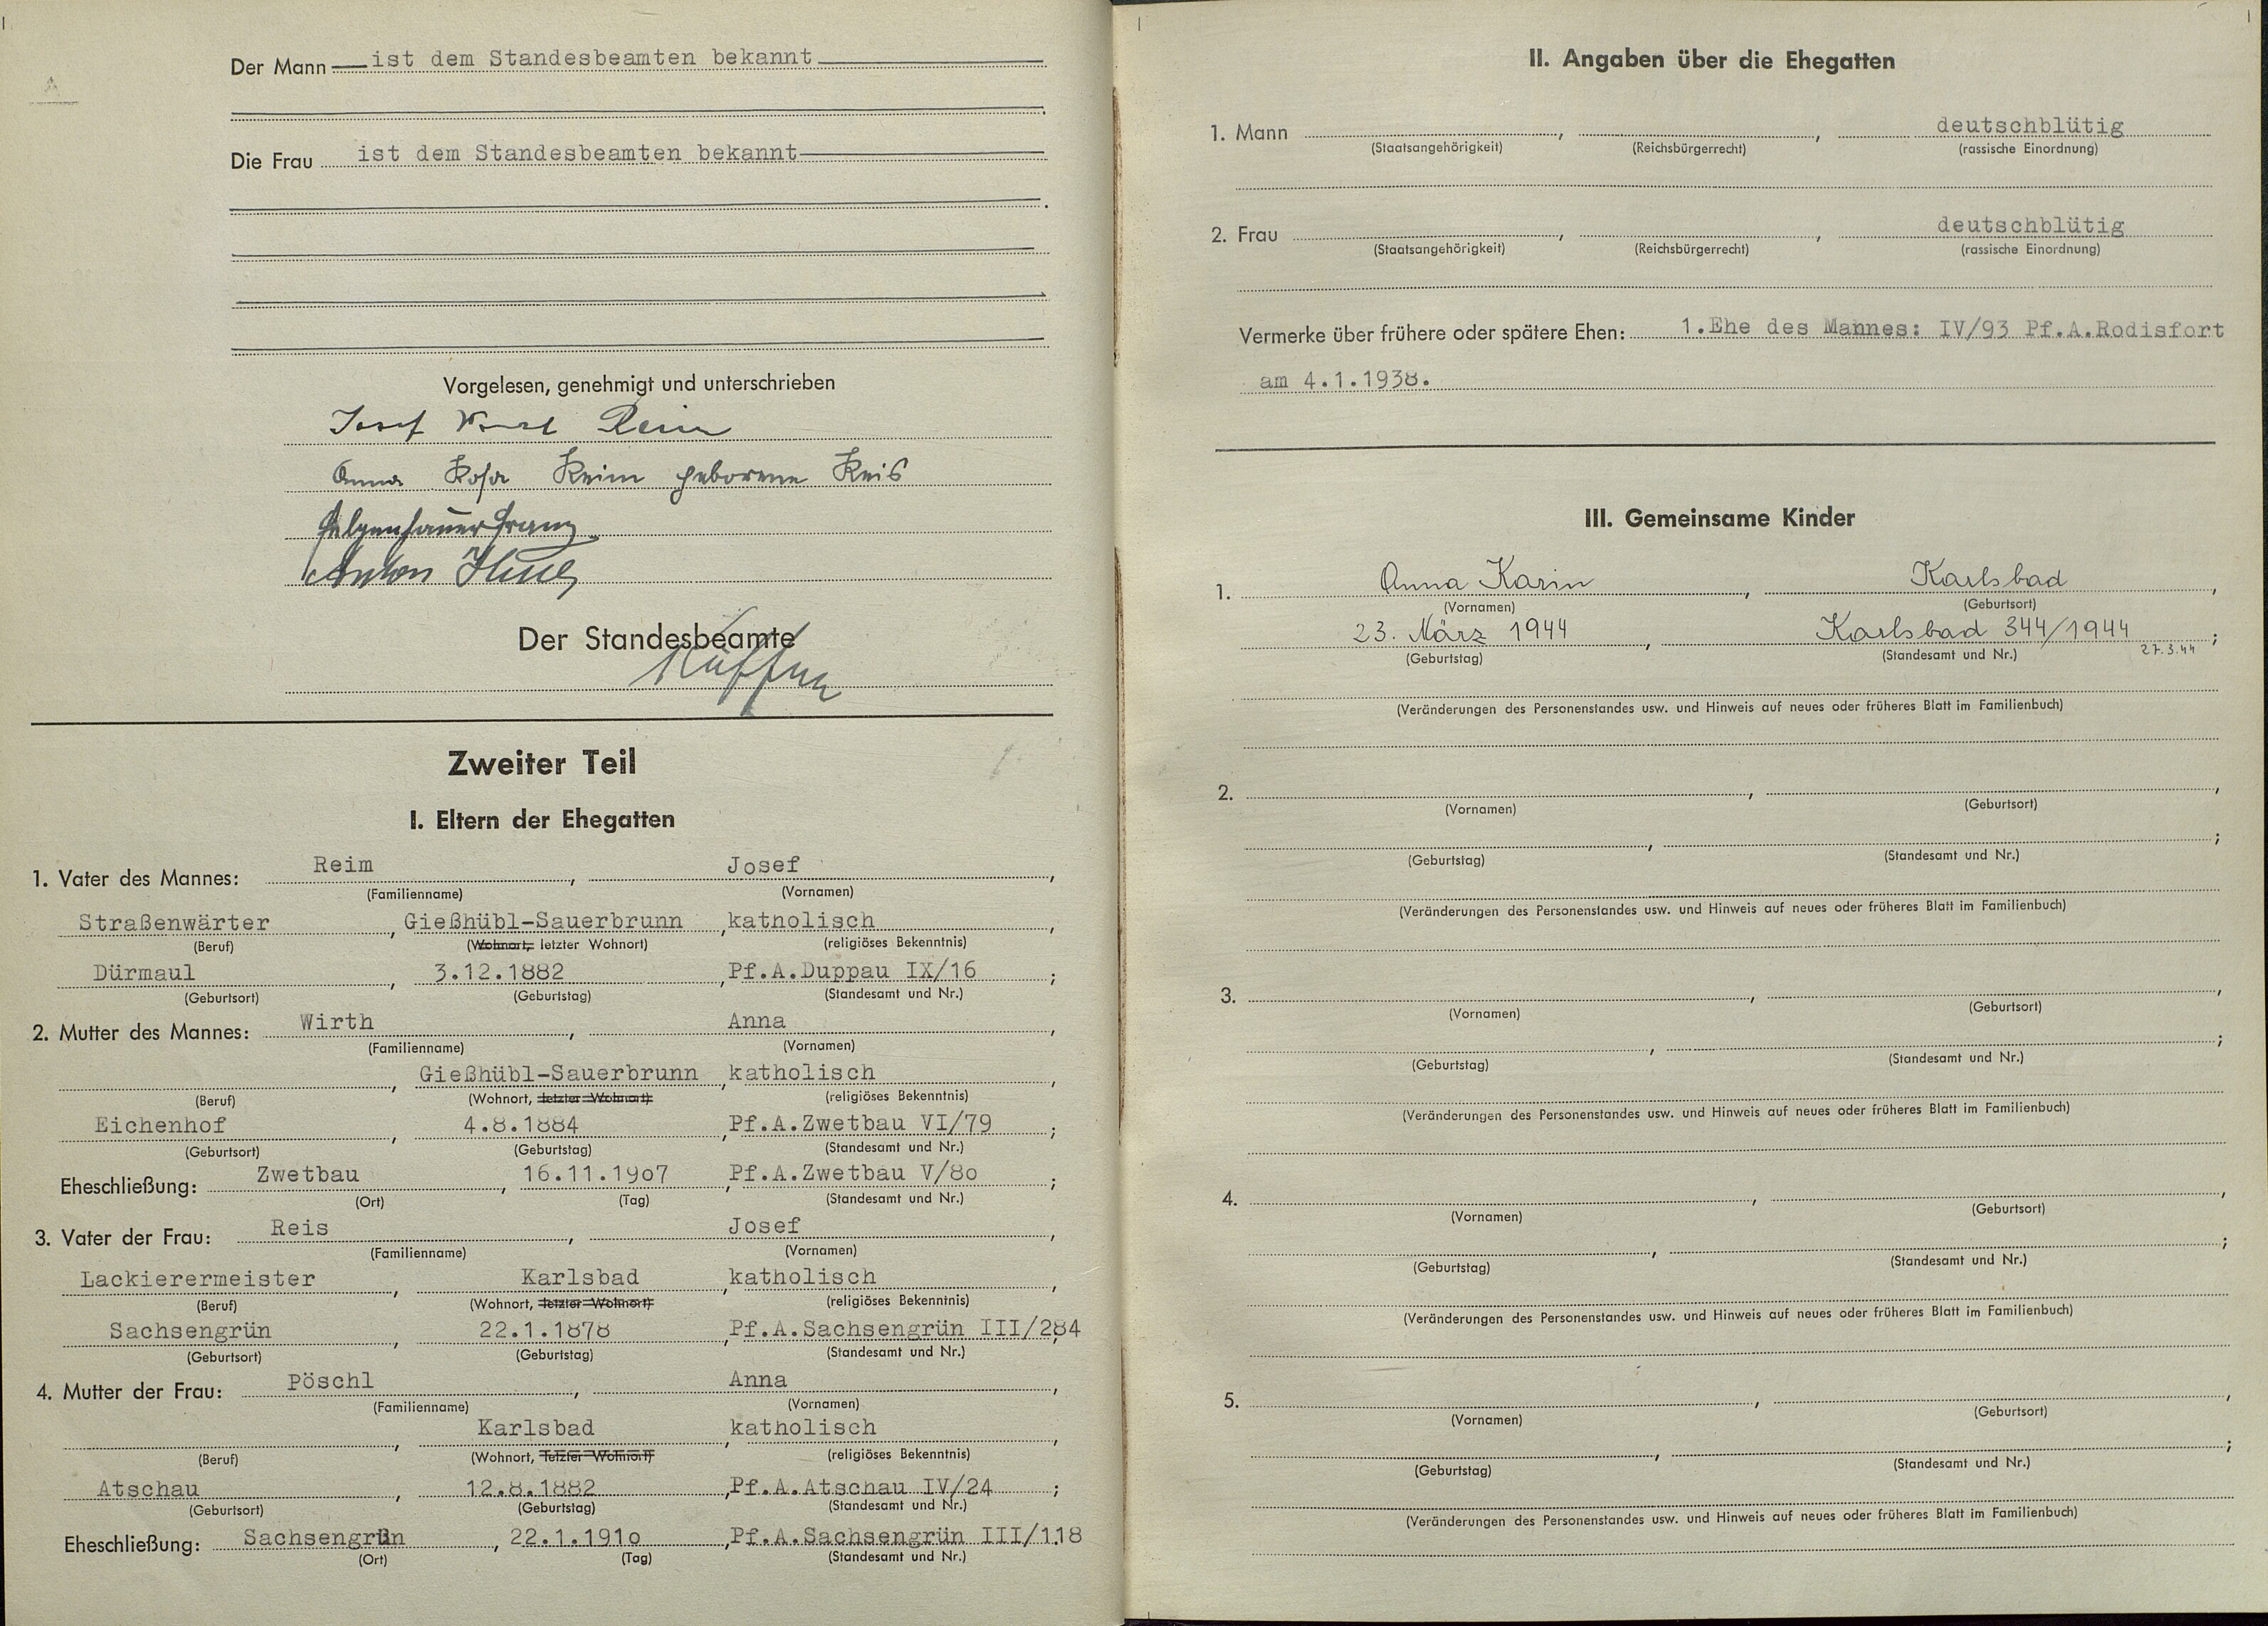 Der Mann ist dem Standesbeamten bekannt
Die Frau ist dem Standesbeamten bekannt
.
Vorgelesen, genehmigt und unterschrieben
Josef Karl Reim
Anna Rosa Reim geborene Reis
Felgenhauer Franz
Anton
Der Standesbeamte
Zweiter Teil
I. Eltern der Ehegatten
1. Vater des Mannes: Reim, Josef,
(Familienname) (Vornamen)
Straßenwärter, Gießhübl-Sauerbrunn, katholisch,
(Beruf) (Wohnort, letzter Wohnort) (religiöses Bekenntnis)
Dürmaul, 3.12.1882, Pf.A.Duppau IX/16;
(Geburtsort) (Geburtstag) (Standesamt und Nr.)
2. Mutter des Mannes: Wirth, Anna,
(Familienname) (Vornamen)
, Gießhübl-Sauerbrunn, katholisch,
(Beruf) (Wohnort, letzter Wohnort) (religiöses Bekenntnis)
Eichenhof, 4.8.1884, Pf.A.Zwetbau VI/79;
(Geburtsort) (Geburtstag) (Standesamt und Nr.)
Eheschließung: Zwetbau, 16.11.19o7, Pf.A.Zwetbau V/8o;
(Ort) (Tag) (Standesamt und Nr.)
3. Vater der Frau: Reis, Josef,
(Familienname) (Vornamen)
Lackierermeister, Karlsbad, katholisch,
(Beruf) (Wohnort, letzter Wohnort) (religiöses Bekenntnis)
Sachsengrün, 22.1.1878, Pf.A.Sachsengrün III/284;
(Geburtsort) (Geburtstag) (Standesamt und Nr.)
4. Mutter der Frau: Pöschl, Anna,
(Familienname) (Vornamen)
, Karlsbad, katholisch,
(Beruf) (Wohnort, letzter Wohnort) (religiöses Bekenntnis)
Atschau, 12.8.1882, Pf.A.Atschau IV/24;
(Geburtsort) (Geburtstag) (Standesamt und Nr.)
Eheschließung: Sachsengrün, 22.1.191o, Pf.A.Sachsengrün III/118
(Ort) (Tag) (Standesamt und Nr.)
II. Angaben über die Ehegatten
1. Mann , , deutschblütig
(Staatsangehörigkeit) (Reichsbürgerrecht) (rassische Einordnung)
2. Frau , , deutschblütig
(Staatsangehörigkeit) (Reichsbürgerrecht) (rassische Einordnung)
Vermerke über frühere oder spätere Ehen: 1.Ehe des Mannes: IV/93 Pf.A.Rodisfort
am 4.1.1938.
III. Gemeinsame Kinder
1. Anna Karin, Karlsbad,
(Vornamen) (Geburtsort)
23. März 1944, Karlsbad 344/1944;
(Geburtstag) (Standesamt und Nr.) 27.3.44
(Veränderungen des Personenstandes usw. und Hinweis auf neues oder früheres Blatt im Familienbuch)
2. , ,
(Vornamen) (Geburtsort)
, ;
(Geburtstag) (Standesamt und Nr.)
(Veränderungen des Personenstandes usw. und Hinweis auf neues oder früheres Blatt im Familienbuch)
3. , ,
(Vornamen) (Geburtsort)
, ;
(Geburtstag) (Standesamt und Nr.)
(Veränderungen des Personenstandes usw. und Hinweis auf neues oder früheres Blatt im Familienbuch)
4. , ,
(Vornamen) (Geburtsort)
, ;
(Geburtstag) (Standesamt und Nr.)
(Veränderungen des Personenstandes usw. und Hinweis auf neues oder früheres Blatt im Familienbuch)
5. , ,
(Vornamen) (Geburtsort)
, ;
(Geburtstag) (Standesamt und Nr.)
(Veränderungen des Personenstandes usw. und Hinweis auf neues oder früheres Blatt im Familienbuch)